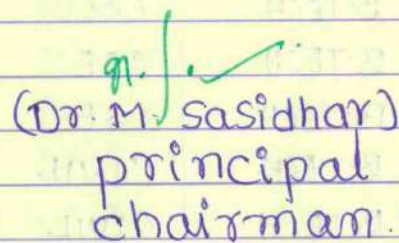 (Dr. M. Sasidhar)
principal
chairman.